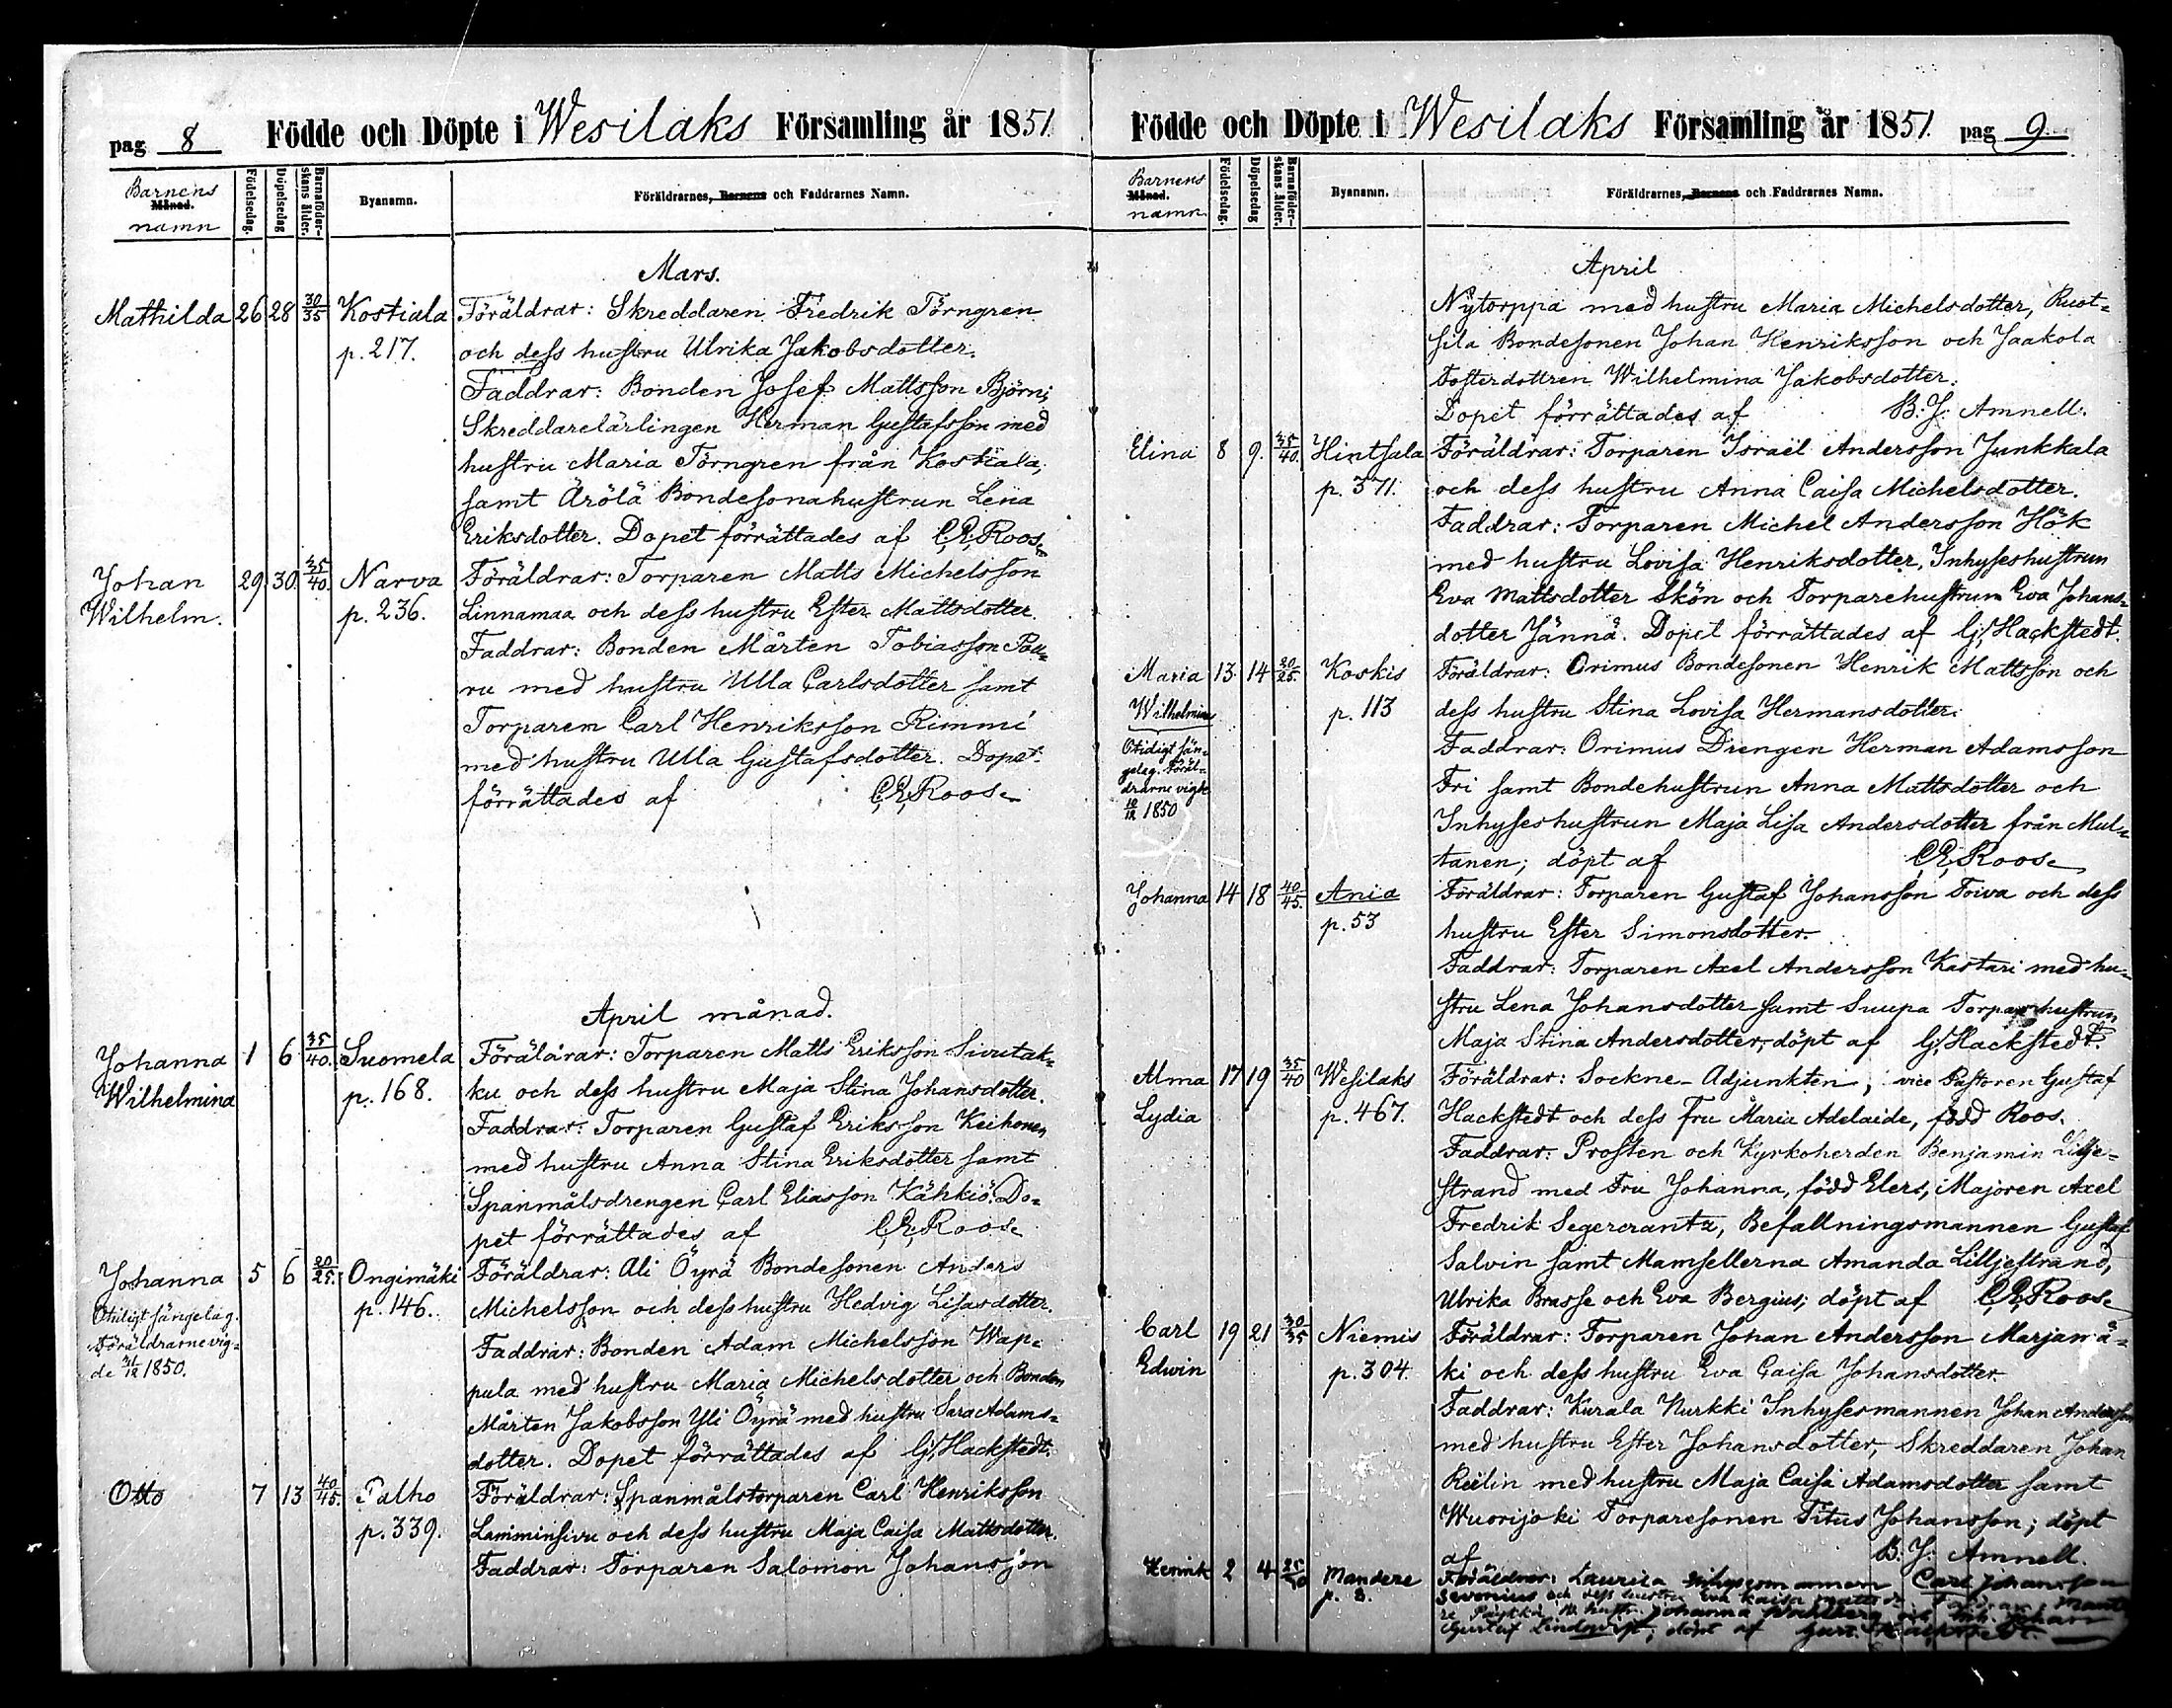 pag 8 Födde och Döpte i Wesilaks Församling år 1851
Barnens
Månad.
namn
Födelsedag.
Döpelsedag
Barnaföder-
skans ålder.
Byanamn.
Föräldrarnes, Barnens och Faddrarnes Namn.
Mars.
Mathilda 26 28 30/35 Kostiala Föräldrar: Skreddaren Fredrik Törngren
p. 217. och dess hustru Ulrika Jakobsdotter.
Faddrar: Bonden Josef Mattsson Björni,
Skreddarelärlingen Herman Gustafsson med
hustru Maria Törngren från Kostiala,
samt Ärölä Bondesonahustrun Lena
Eriksdotter. Dopet förrättades af C.E. Roos.
Johan 29 30 35/40. Narva Föräldrar: Torparen Matts Michelsson
Wilhelm. p. 236. Linnamaa och dess hustru Ester Mattsdotter.
Faddrar: Bonden Mårten Tobiasson Pau-
ru med hustru Ulla Carlsdotter samt
Torparen Carl Henriksson Rimmi
med hustru Ulla Gustafsdotter. Dopet
förrättades af C.E. Roos.
April månad.
Johanna 1 6 35/40. Suomela Föräldrar: Torparen Matts Eriksson Siurutak-
Wilhelmina p. 168. ku och dess hustru Maja Stina Johansdotter.
Faddrar: Torparen Gustaf Eriksson Keihonen
med hustru Anna Stina Eriksdotter samt
Spanmålsdrengen Carl Eliasson Kähkiö. Do-
pet förrättades af C.E. Roos.
Johanna 5 6 20/25. Ongimäki Föräldrar: Ali Öyrä Bondesonen Anders
Otidigt sängelag. p. 146. Michelsson och dess hustru Hedvig Lisasdotter.
Föräldrarne vig-
de 31/12 1850.
Faddrar: Bonden Adam Michelsson Wap-
pula med hustru Maria Michelsdotter och Bonden
Mårten Jakobsson Yli Öyrä med hustru Sara Adams-
dotter. Dopet förrättades af G. Hackstedt.
Otto 7 13 40/45. Palho Föräldrar: Spanmålstorparen Carl Henriksson
p. 339. Lamminsivu och dess hustru Maja Caisa Mattsdotter.
Faddrar: Torparen Salomon Johansson
Födde och Döpte i Wesilaks Församling år 1851. pag 9
Barnens
Månad.
namn.
Födelsedag.
Döpelsedag
Barnaföder-
skans ålder.
Byanamn.
Föräldrarnes, Barnens och Faddrarnes Namn.
April
Nytorppa med hustru Maria Michelsdotter, Ruot-
sila Bondesonen Johan Henriksson och Jaakola
Fosterdottren Wilhelmina Jakobsdotter.
Dopet förrättades af B.J. Amnell.
Elina 8 9. 35/40. Hintsala Föräldrar: Torparen Israël Andersson Junkkala
p. 371. och dess hustru Anna Caisa Michelsdotter.
Faddrar: Torparen Michel Andersson Hök
med hustru Lovisa Henriksdotter, Inhyseshustrun
Eva Mattsdotter Skön och Torparehustrun Eva Johans-
dotter Jännä. Dopet förrättades af G. Hackstedt.
Maria 13 14 20/25. Koskis Föräldrar: Orimus Bondesonen Henrik Mattsson och
Wilhelmina p. 113 dess hustru Stina Lovisa Hermansdotter.
Otidigt sän-
gelag. Föräl-
drarne vigde
10/12 1850
Faddrar: Orimus Drengen Herman Adamsson
Fri samt Bondehustrun Anna Mattsdotter och
Inhyseshustrun Maja Lisa Andersdotter från Mul-
tanen; döpt af C.E. Roos.
Johanna 14 18 40/45. Ania Föräldrar: Torparen Gustaf Johansson Toiva och dess
p. 53 hustru Ester Simonsdotter.
Faddrar: Torparen Axel Andersson Kastari med hu-
stru Lena Johansdotter samt Suupa Torparhustrun
Maja Stina Andersdotter, döpt af G. Hackstedt.
Alma 17 19 35/40 Wesilaks Föräldrar: Sockne-Adjunkten, vice Pastoren Gustaf
Lydia p. 467. Hackstedt och dess Fru Maria Adelaide, född Roos.
Faddrar: Prosten och Kyrkoherden Benjamin Lillje-
strand med Fru Johanna, född Elers, Majoren Axel
Fredrik Segercrantz, Befallningsmannen Gustaf
Salvin samt Mamsellerna Amanda Lilljestrand,
Ulrika Brasse och Eva Bergius; döpt af C.E. Roos.
Carl 19 21 30/35 Niemis Föräldrar: Torparen Johan Andersson Marjamä-
Edwin p. 304. ki och dess hustru Eva Caisa Johansdotter.
Faddrar: Kurala Kurkki Inhysesmannen Johan Andersson
med hustru Ester Johansdotter, Skreddaren Johan
Reilin med hustru Maja Caisa Adamsdotter samt
Wuorijoki Torparesonen Titus Johansson; döpt
af B.J. Amnell.
Henrik 2 4 Mandere Föräldrar: Laurila Inhysesmannen Carl Johansson
p. 3. Severius och dess hustru Eva Kaisa Faddrar:
hustr. Johanna och Inh. Johan
Gustaf Lindqvist, döpt af Gust. Hackstedt.